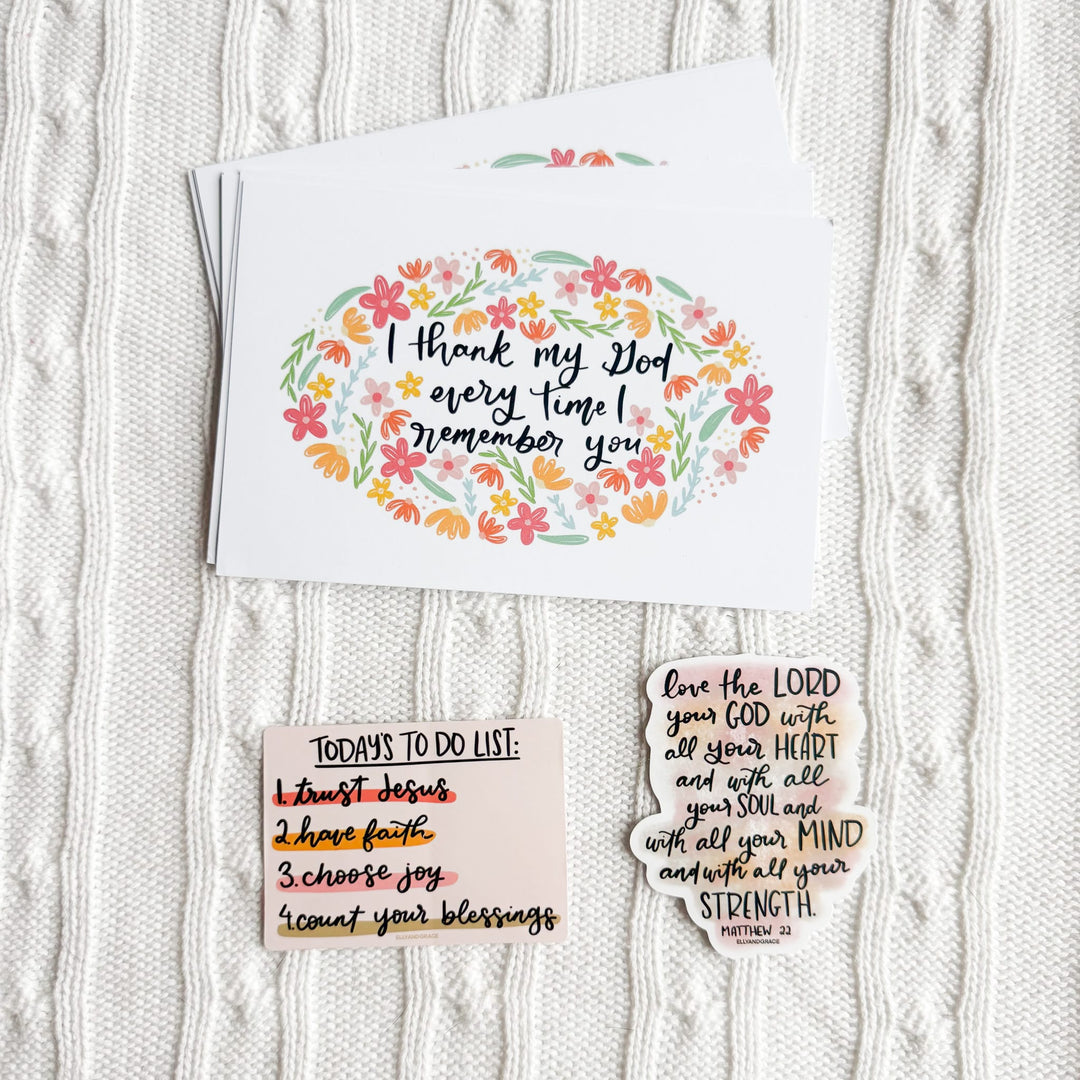 I thank my God
every time I
remember you
TODAY'S TO DO LIST:
1. trust Jesus
2. have faith
3. choose joy
4. count your blessings
ELLYANDGRACE
love the LORD
your GOD with
all your HEART
and with all
your SOUL and
with all your MIND
and with all your
STRENGTH.
MATTHEW 22
ELLYANDGRACE